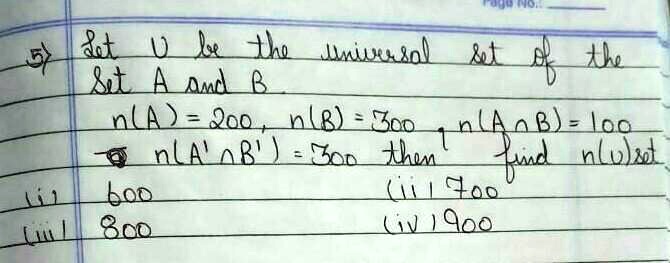 Page No.:
5) Let U be the universal set of the
Set A and B
n(A) = 200, n(B) = 300, n(A∩B) = 100
n(A'∩B') = 300 then find n(U) set
(i) 600 (ii) 700
(iii) 800 (iv) 900